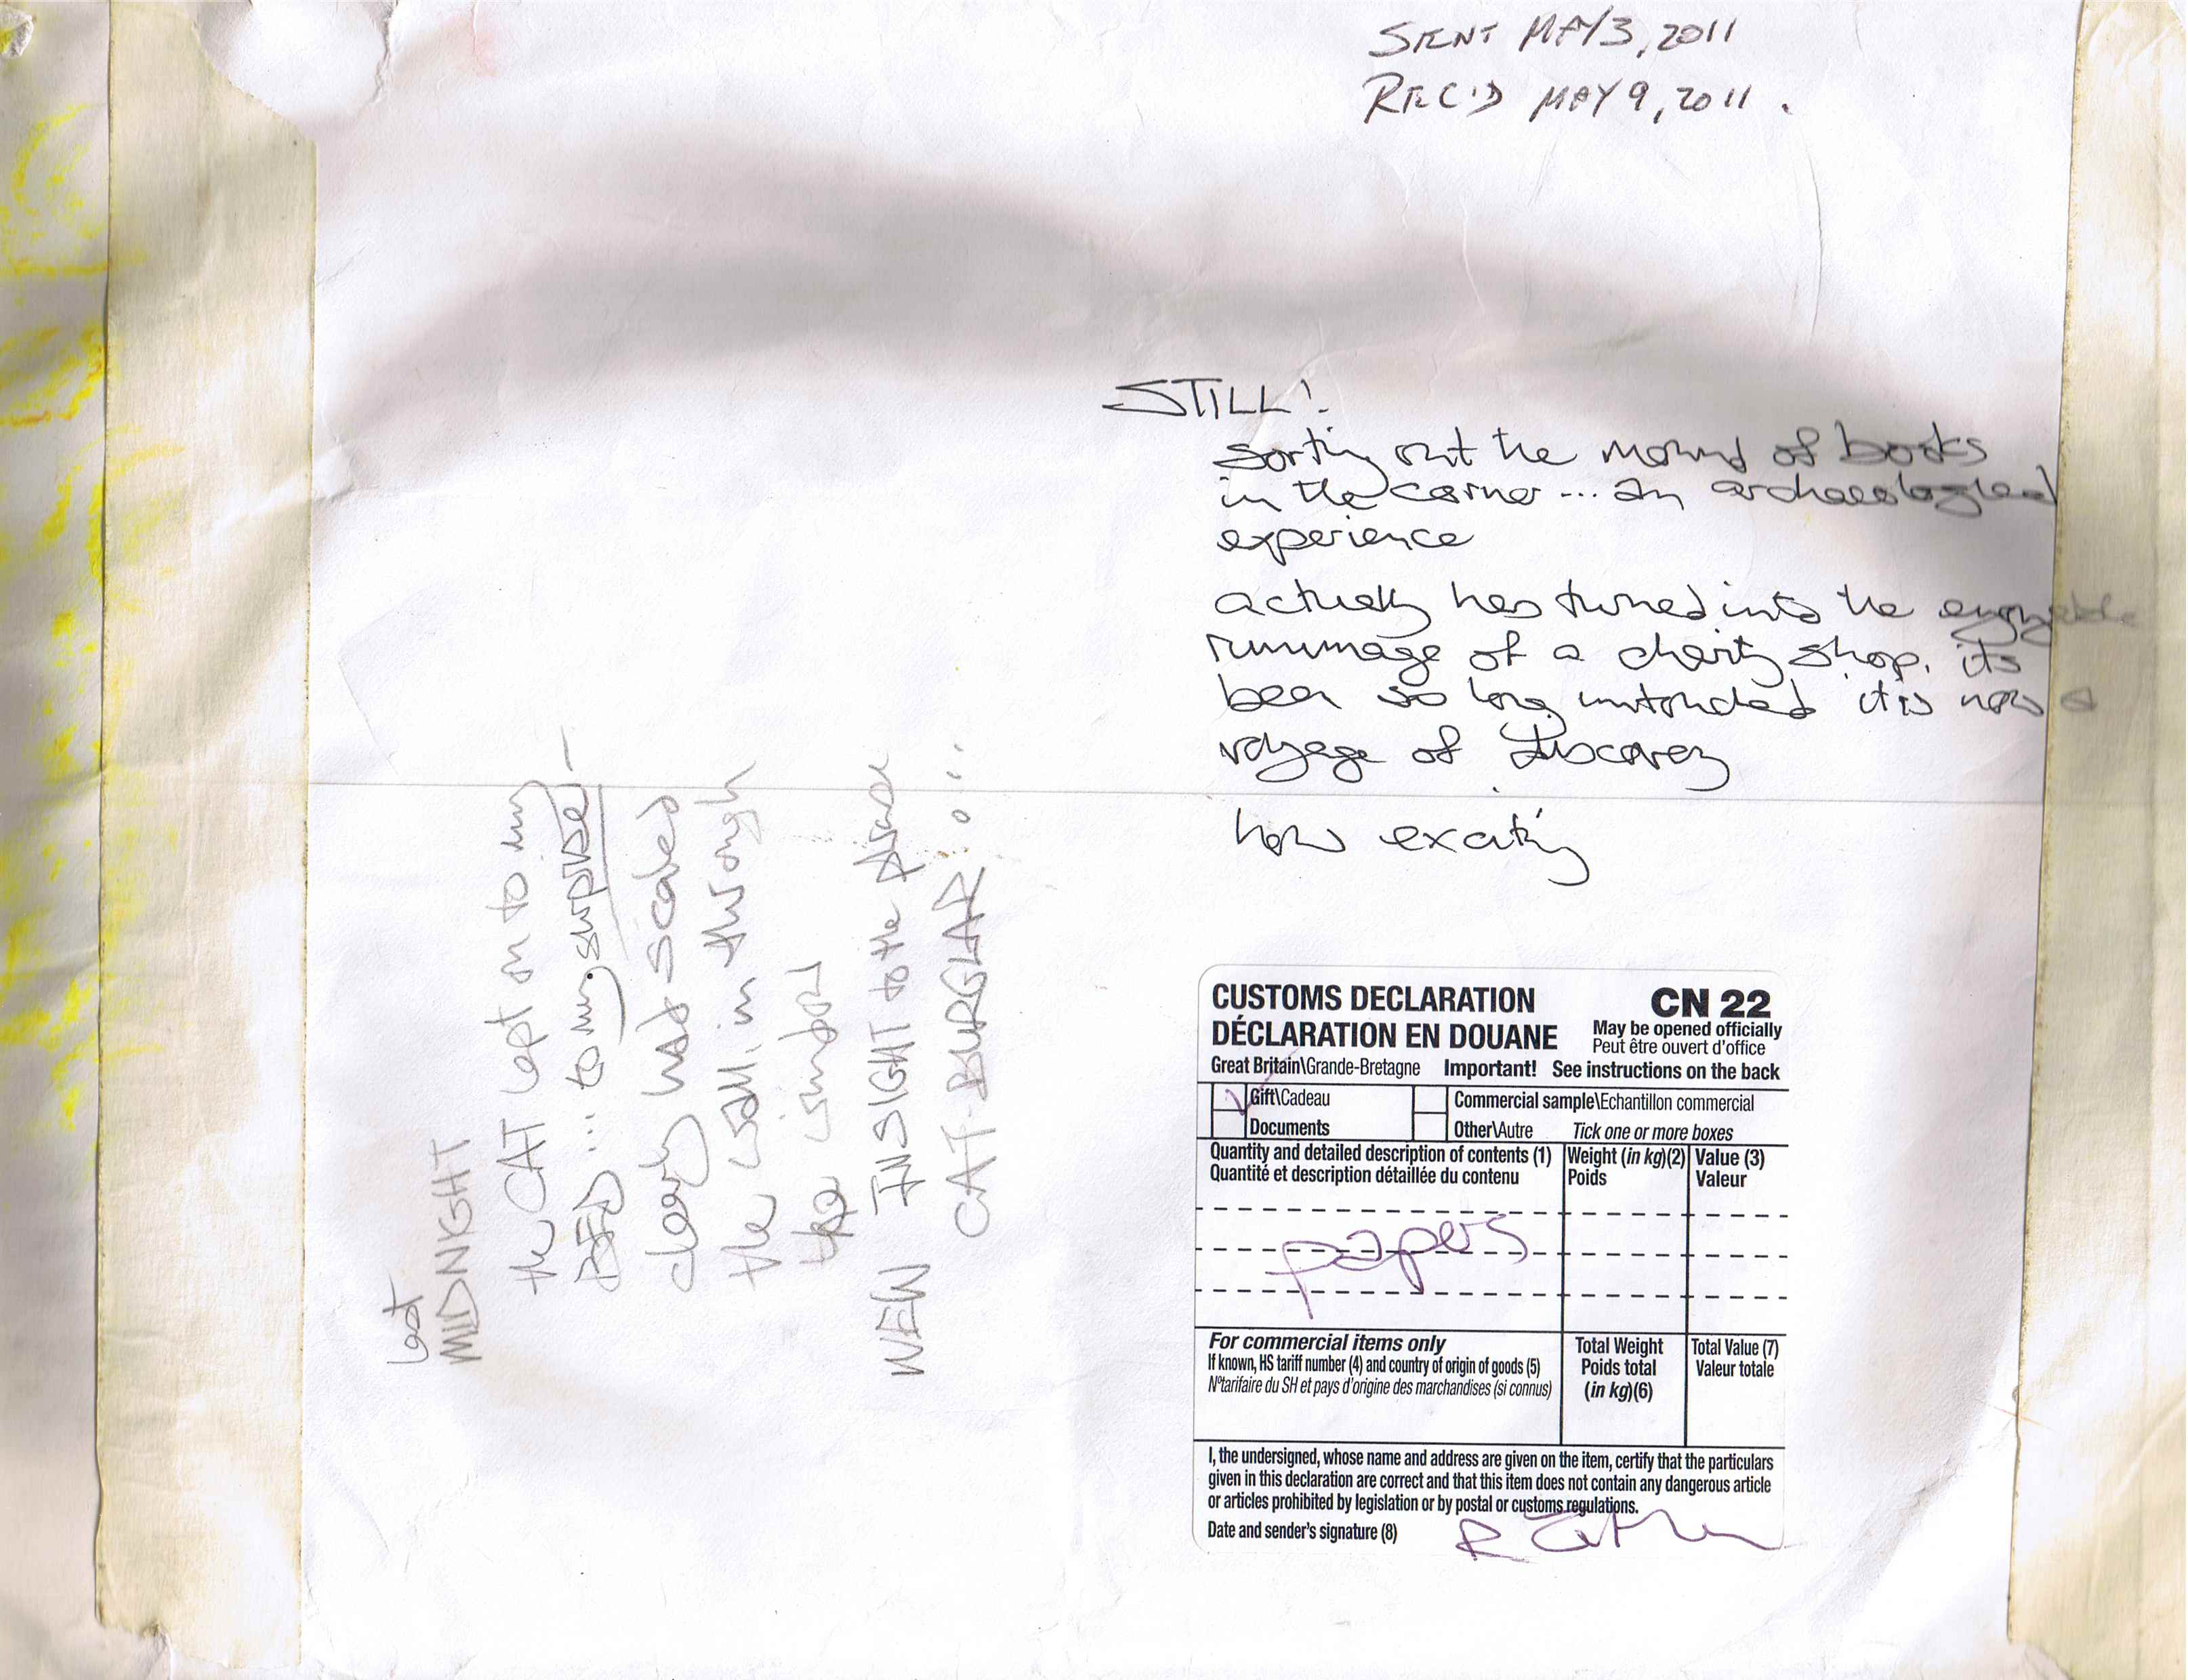 SENT MAY 3, 2011
REC'D MAY 9, 2011.
STILL!
sorting out the mound of books
in the corner ... an archaeological
experience
actually has turned into the enjoyable
rummage of a charity shop. its
been so long untouched it is now a
voyage of discovery
how exciting
last
MIDNIGHT
the CAT lept on to my
BED ... to my surprise –
clearly had scaled
the wall, in through
the window
NEW INSIGHT to the phrase
CAT-BURGLAR ...
CUSTOMS DECLARATION CN 22
DÉCLARATION EN DOUANE May be opened officially
Peut être ouvert d'office
Great Britain\Grande-Bretagne Important! See instructions on the back
Gift\Cadeau Commercial sample\Echantillon commercial
Documents Other\Autre Tick one or more boxes
Quantity and detailed description of contents (1) Weight (in kg)(2) Value (3)
Quantité et description détaillée du contenu Poids Valeur
papers
For commercial items only Total Weight Total Value (7)
If known, HS tariff number (4) and country of origin of goods (5) Poids total Valeur totale
N°tarifaire du SH et pays d'origine des marchandises (si connus) (in kg)(6)
I, the undersigned, whose name and address are given on the item, certify that the particulars
given in this declaration are correct and that this item does not contain any dangerous article
or articles prohibited by legislation or by postal or customs regulations.
Date and sender's signature (8) R